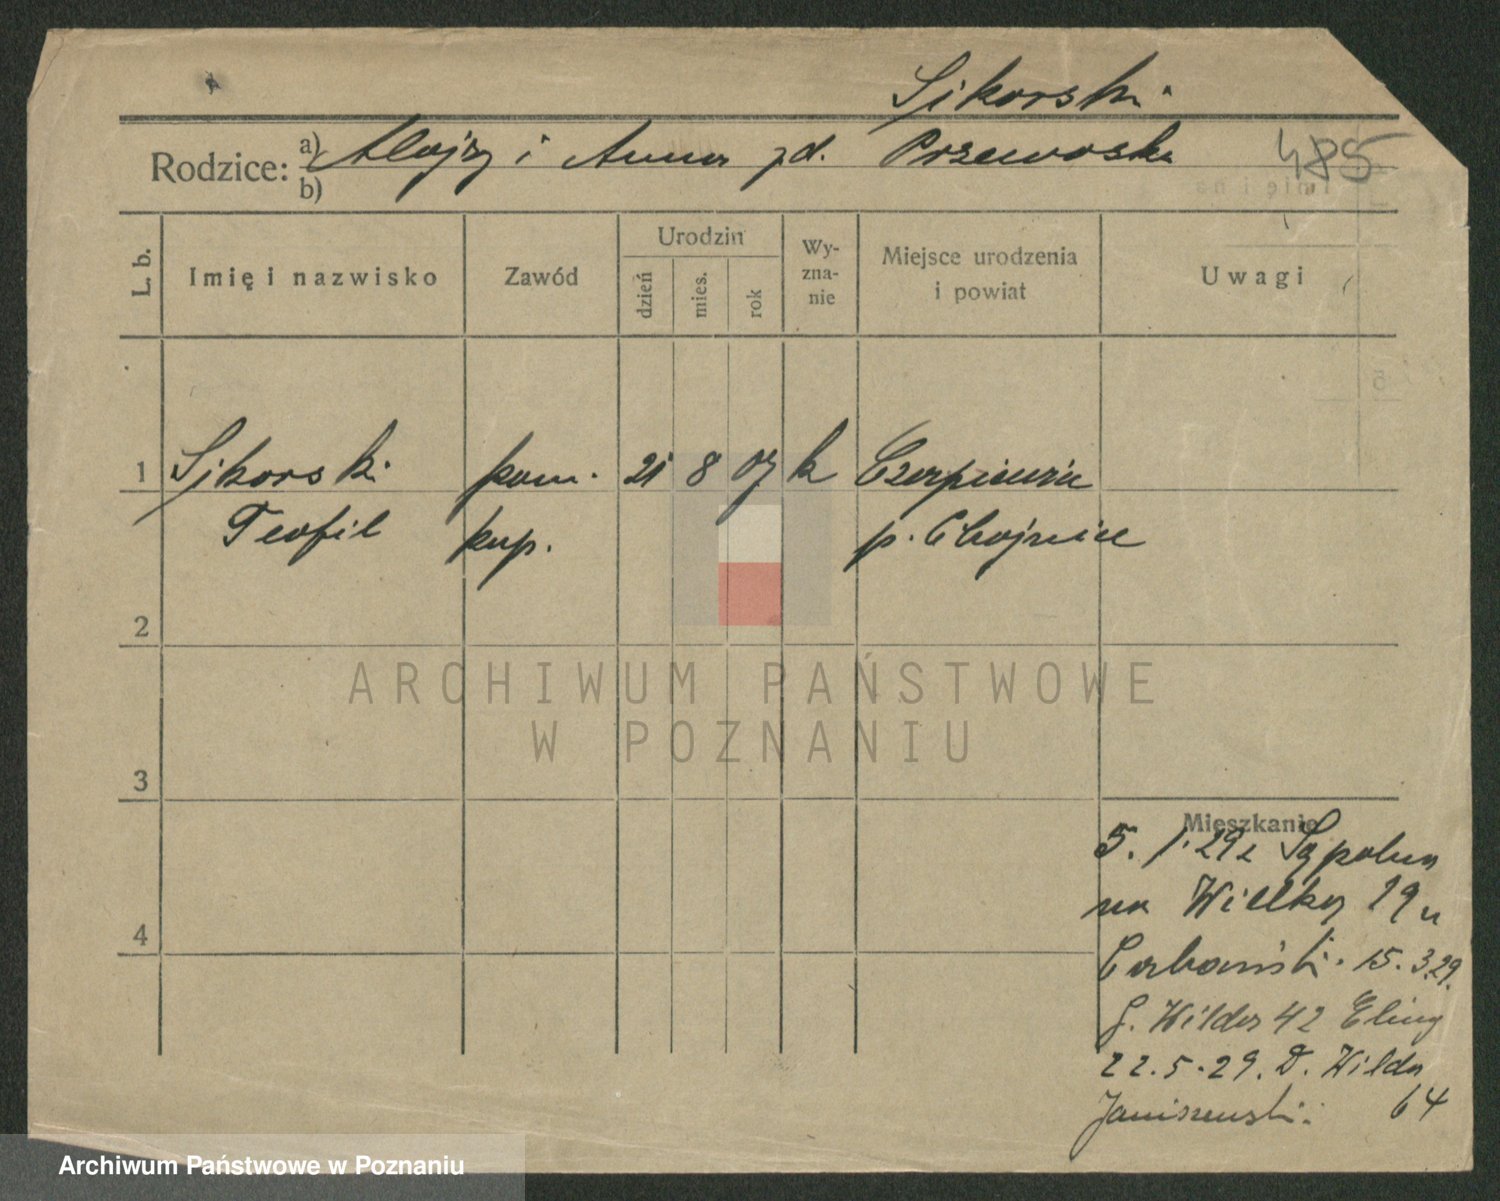 Sikorski
Rodzice: a) Alojzy i Anna zd. Przewoska
b)
485
L. b.
Imię i nazwisko
Zawód
Urodzin
dzień
mies.
rok
Wy-
zna-
nie
Miejsce urodzenia
i powiat
Uwagi
1 Sikorski pom. 21 8 07 k
Teofil kup. p. Chojnice
2
3
4
ARCHIWUM PAŃSTWOWE
W POZNANIU
Mieszkanie
5. 1. 29 z Sępolna
na Wielką 19 u
15. 3. 29.
G. Wilda 42
22. 5. 29. D. Wilda
Janiszewski 64
Archiwum Państwowe w Poznaniu